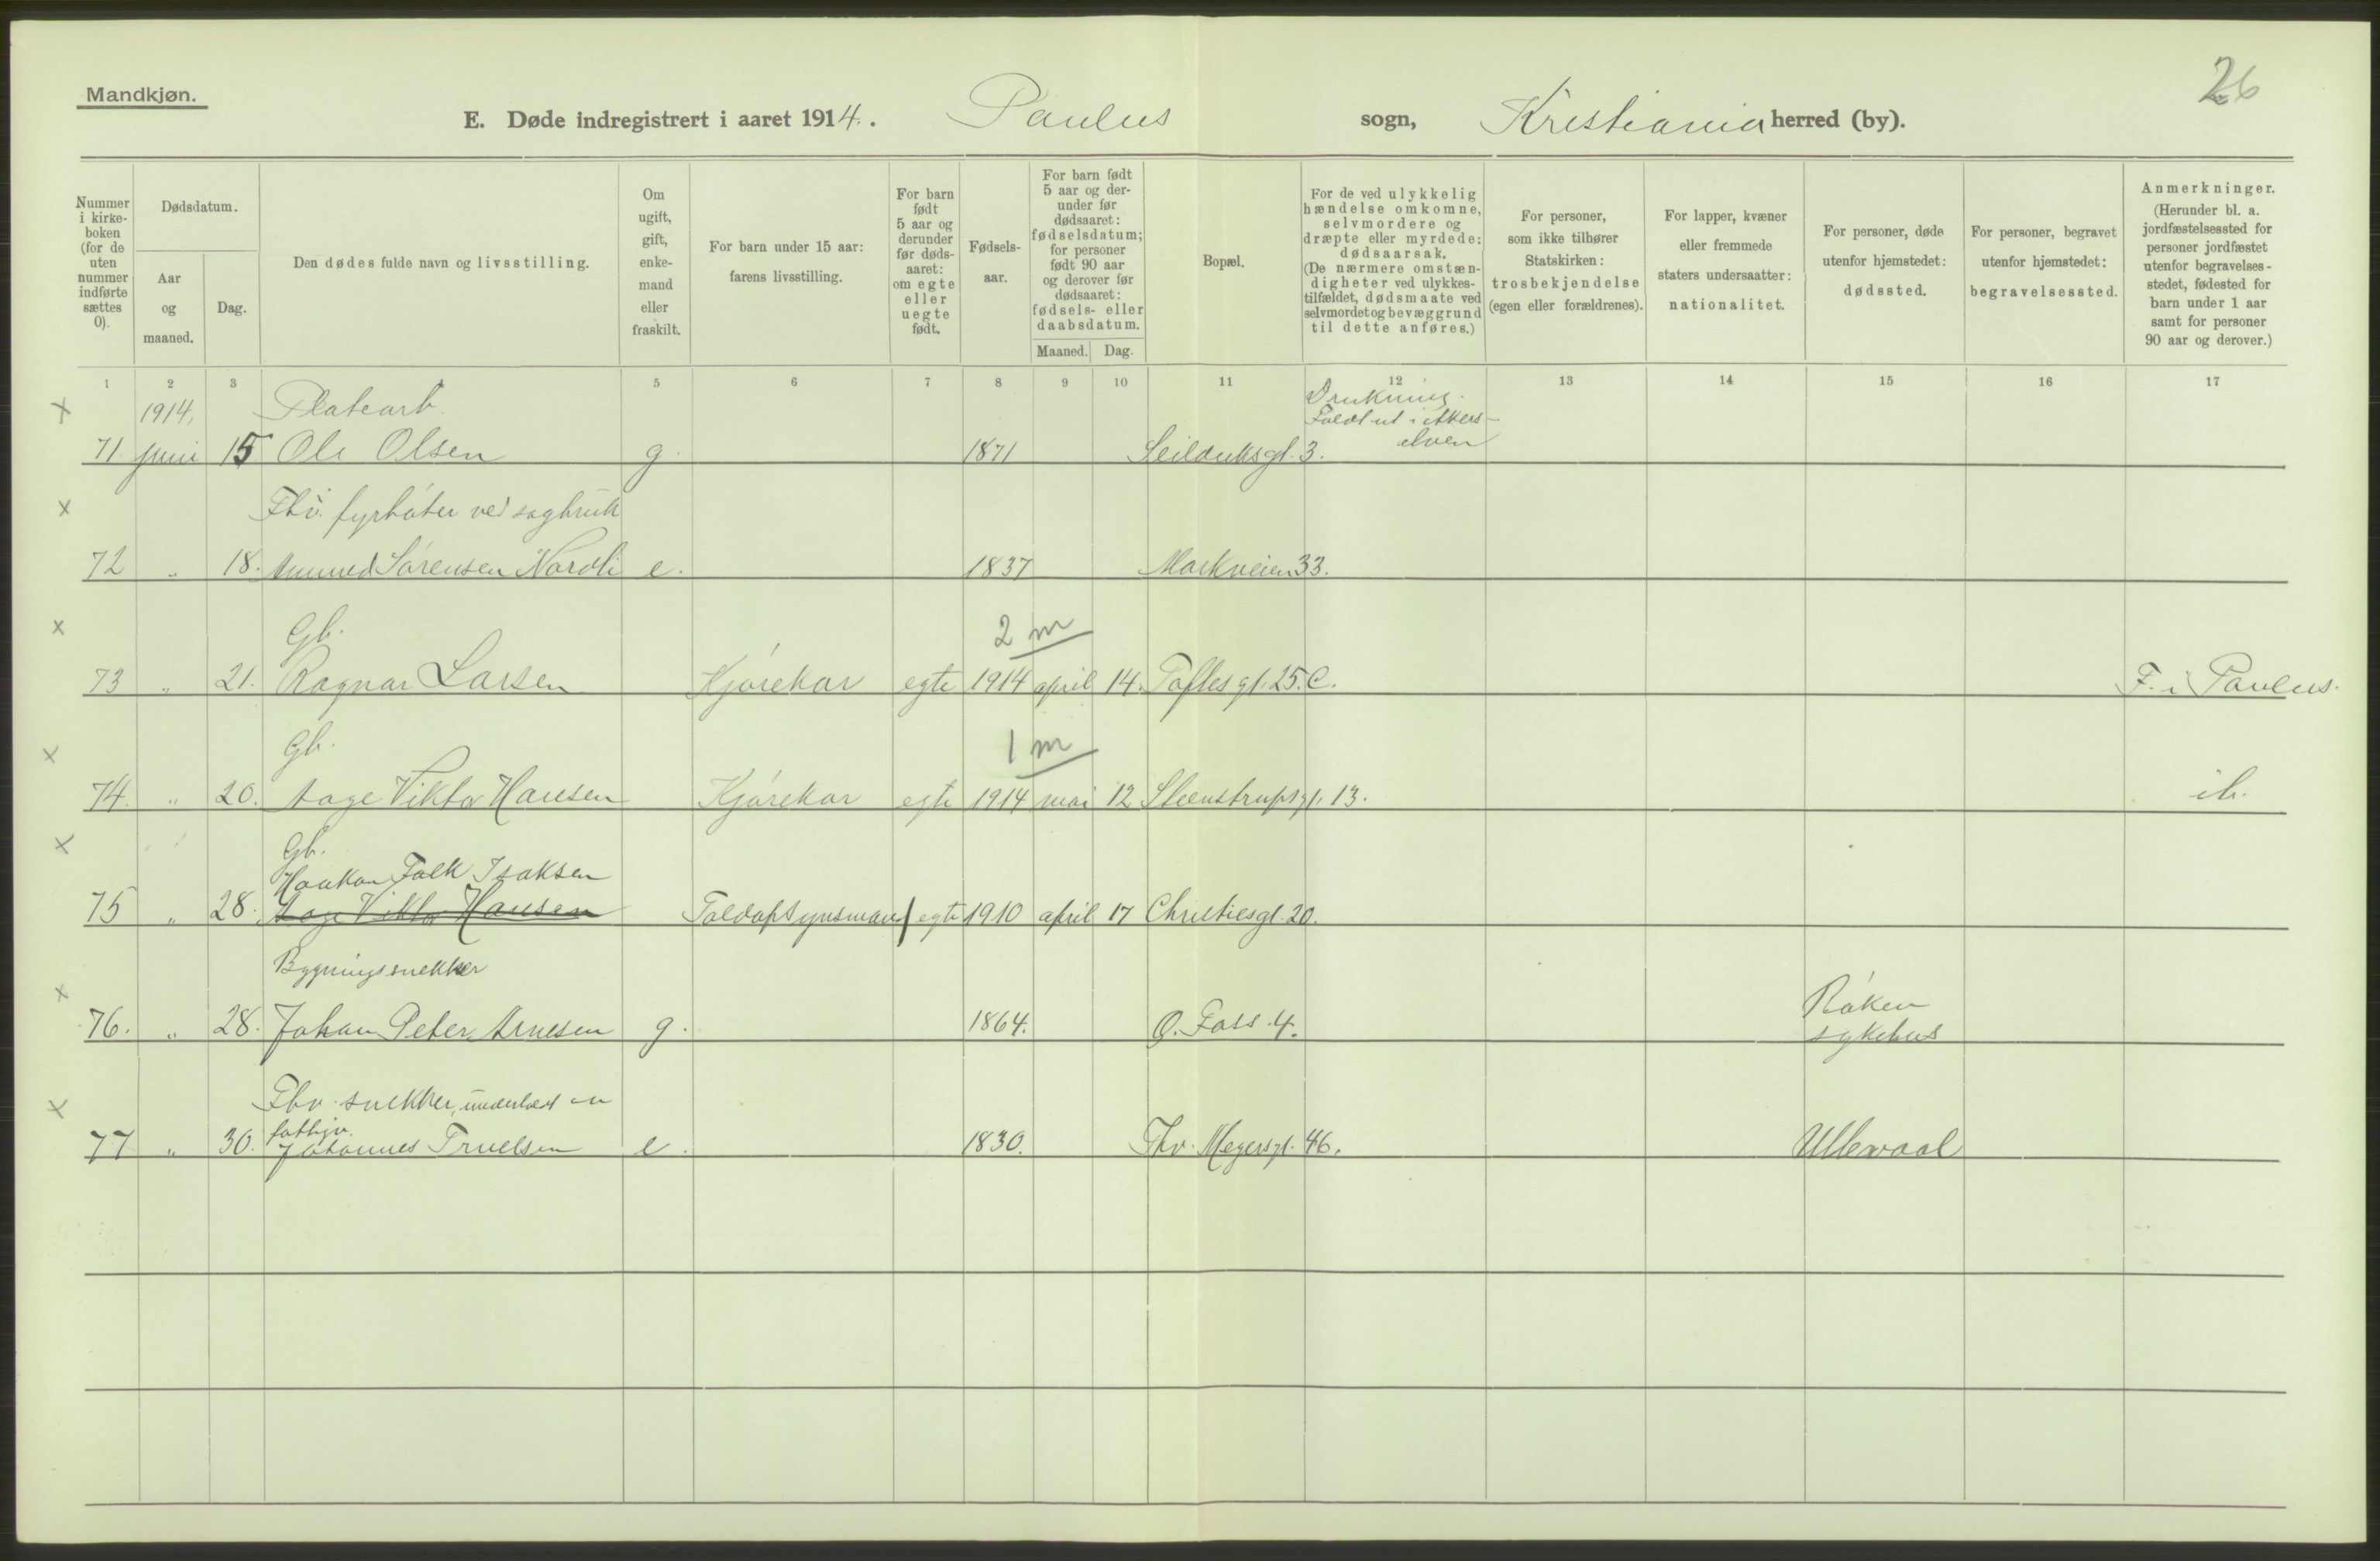 26
Mandkjøn.
E. Døde indregistrert i aaret 1914. Paulus sogn, Kristiania herred (by).
Nummer i kirke- boken (for de uten nummer indførte sættes 0).
Dødsdatum.
Aar og maaned.
Dag.
Den dødes fulde navn og livsstilling.
Om ugift, gift, enke- mand eller fraskilt.
For barn under 15 aar: farens livsstilling.
For barn født 5 aar og derunder før døds- aaret: om egte eller uegte født.
Fødsels- aar.
For barn født 5 aar og der- under før dødsaaret: fødselsdatum; for personer født 90 aar og derover før dødsaaret: fødsels- eller daabsdatum.
Maaned. Dag.
Bopæl.
For de ved ulykkelig hændelse omkomne, selvmordere og dræpte eller myrdede: dødsaarsak. (De nærmere omstæn- digheter ved ulykkes- tilfældet, dødsmaate ved selvmordet og bevæggrund til dette anføres.)
For personer, som ikke tilhører Statskirken: trosbekjendelse (egen eller forældrenes).
For lapper, kvæner eller fremmede staters undersaatter: nationalitet.
For personer, døde utenfor hjemstedet: dødssted.
For personer, begravet utenfor hjemstedet: begravelsessted.
Anmerkninger. (Herunder bl. a. jordfæstelsessted for personer jordfæstet utenfor begravelses- stedet, fødested for barn under 1 aar samt for personer 90 aar og derover.)
1 2 3 5 6 7 8 9 10 11 12 13 14 15 16 17
x 1914, Platearb. Drukning.
Faldt ut i Akers-
elven
71. juni 15 Ole Olsen g. 1871 Seilduksgt. 3.
x Fhv. fyrbøter ved sagbruk
72 " 18. Sørensen Nordli e. 1837 Markveien 33.
x Gb. 2 m
73 " 21. Ragnar Larsen Kjørekar egte 1914 april 14. Toftes gt. 25. C. F. i Paulus.
x Gb. 1 m
74. " 20. Aage Viktor Hansen Kjørekar egte 1914 mai 12 Steenstrupsgt. 13. ib.
x Gb.
Haakon Falk Isaksen
75 " 28. Aage Viktor Hansen Toldopsynsmand egte 1910 april 17 Christiesgt. 20.
x Bygningssnekker
76. " 28. Johan Peter Arnesen g. 1864. Ø. Foss 4. Røken
sykehus
x Fhv. snekker, understøttet av
fattigv.
77 " 30. Johannes Truelsen e. 1830. Thv. Meyersgt. 46. Ullevaal